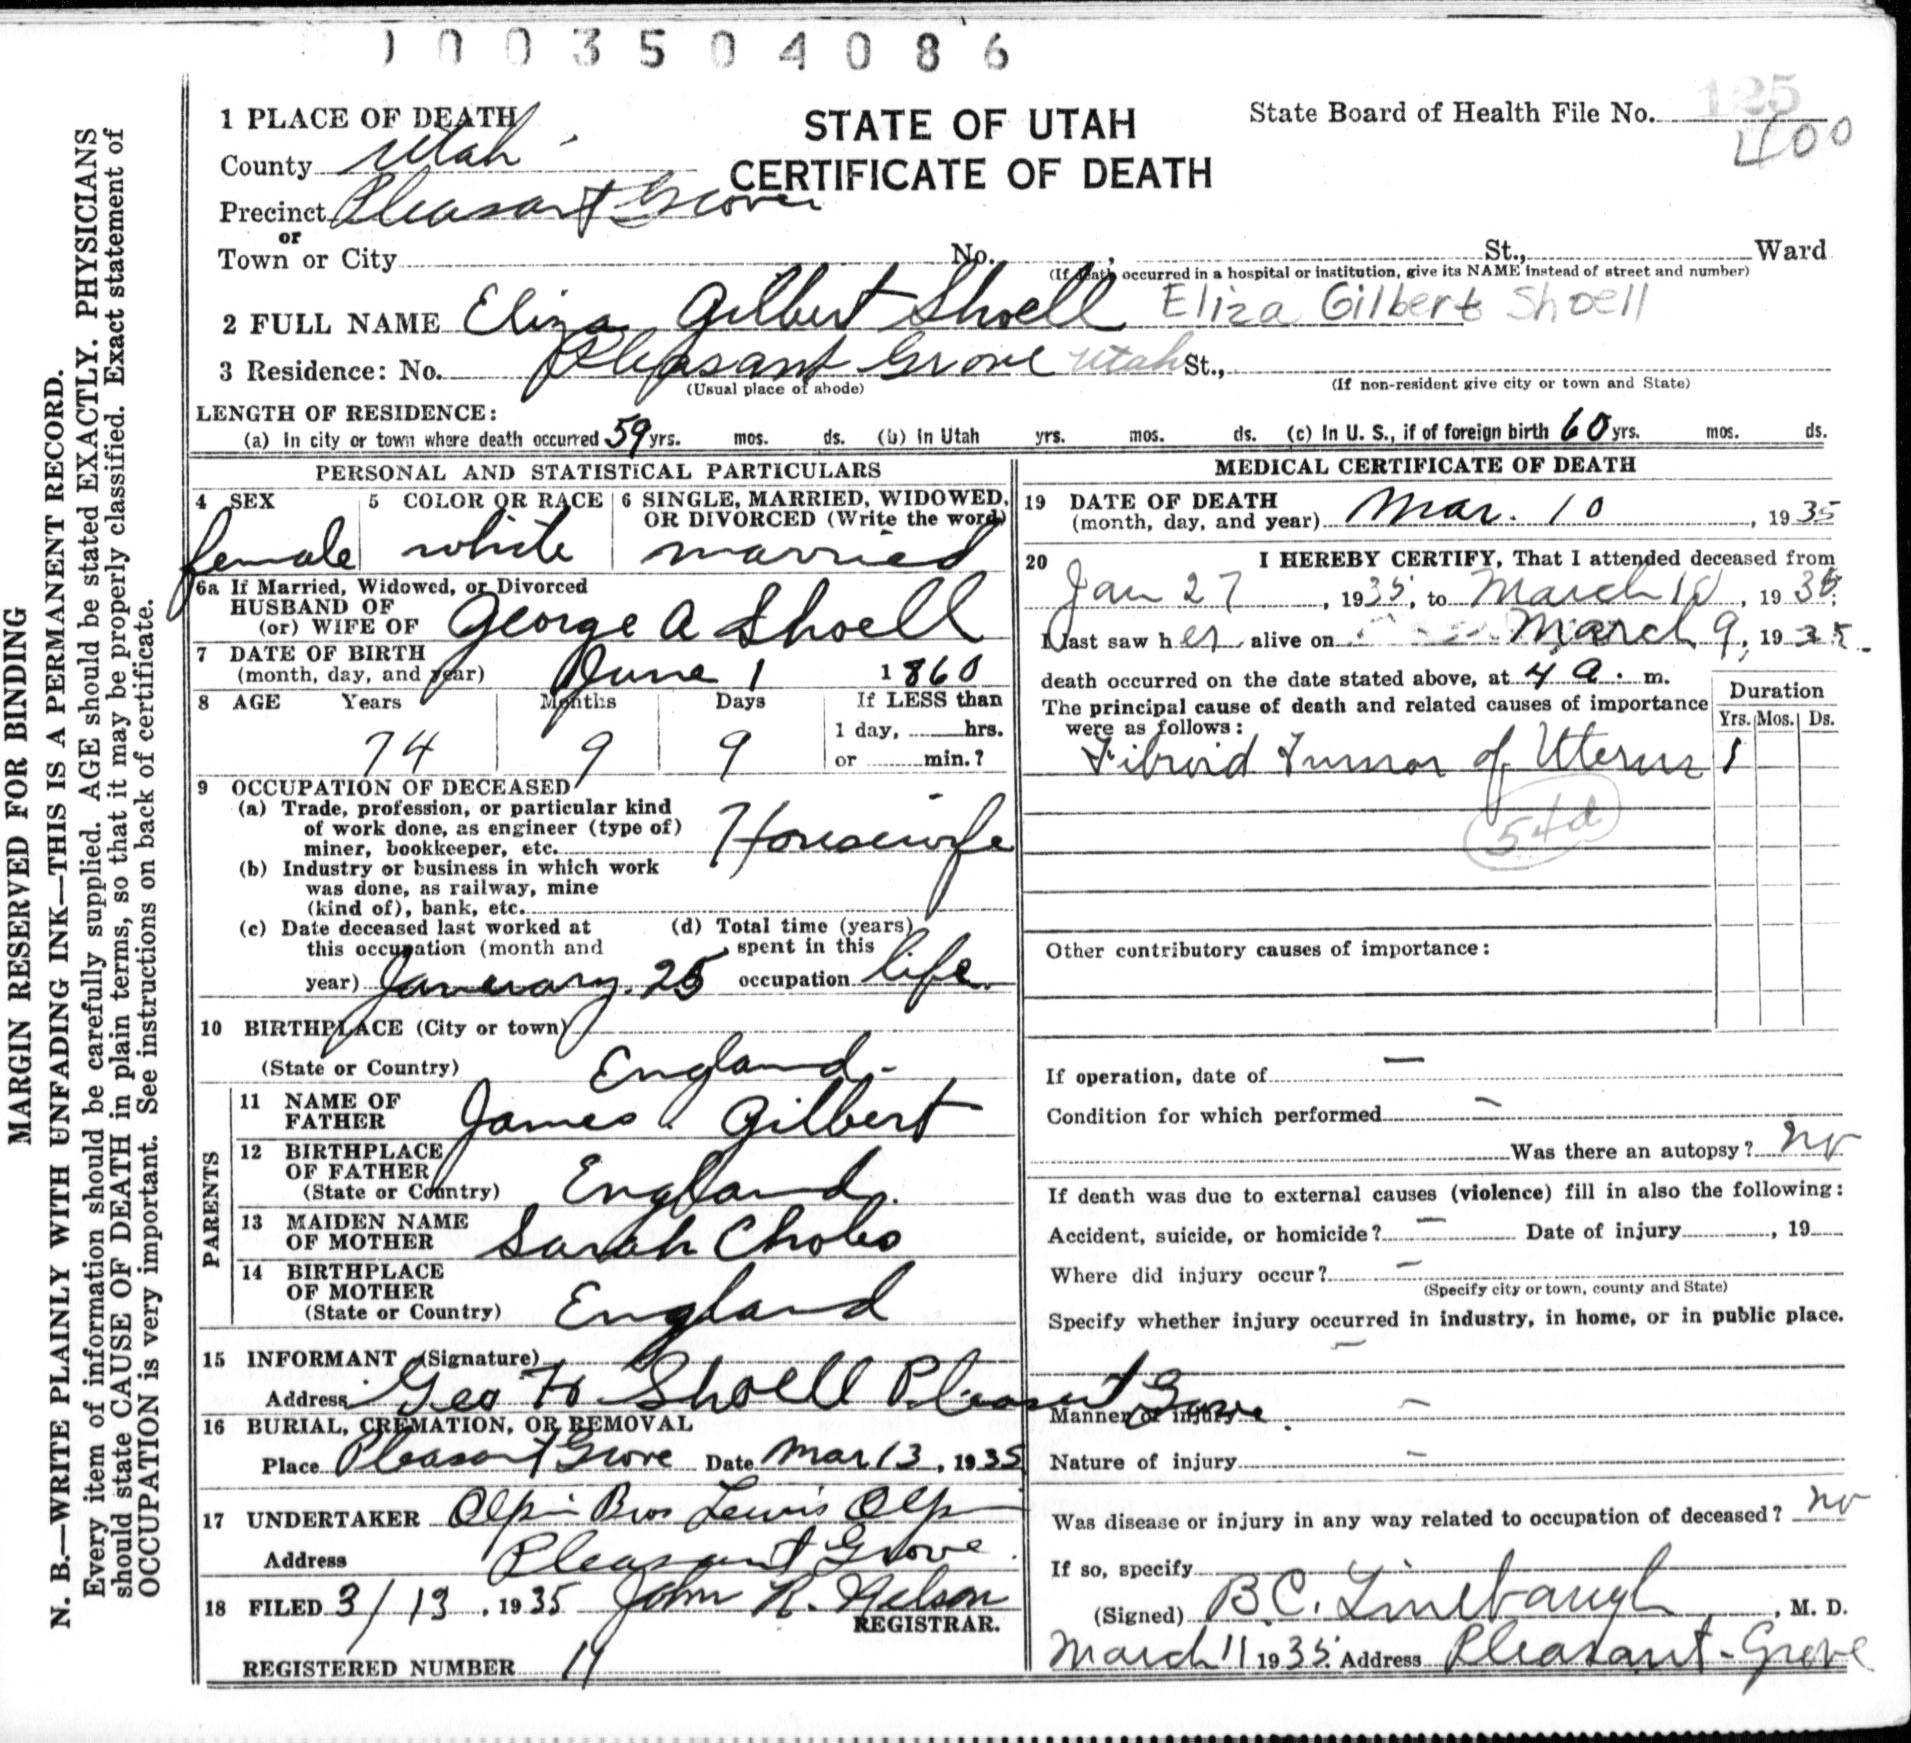 1003504086
1 PLACE OF DEATH
STATE OF UTAH
CERTIFICATE OF DEATH
State Board of Health File No. 125
400
County Utah
Precinct Pleasant Grove
or
Town or City No. St., Ward
(If death occurred in a hospital or institution, give its NAME instead of street and number)
2 FULL NAME Eliza Gilbert Shoell Eliza Gilbert Shoell
3 Residence: No. Pleasant Grove Utah St.,
(Usual place of abode) (If non-resident give city or town and State)
LENGTH OF RESIDENCE:
(a) In city or town where death occurred 59 yrs. mos. ds. (b) In Utah yrs. mos. ds. (c) In U. S., if of foreign birth 60 yrs. mos. ds.
PERSONAL AND STATISTICAL PARTICULARS
4 SEX
female
5 COLOR OR RACE
white
6 SINGLE, MARRIED, WIDOWED,
OR DIVORCED (Write the word)
married
6a If Married, Widowed, or Divorced
HUSBAND OF
(or) WIFE OF George A Shoell
7 DATE OF BIRTH
(month, day, and year) June 1 1860
8 AGE Years Months Days If LESS than
1 day, hrs.
or min.?
74 9 9
9 OCCUPATION OF DECEASED
(a) Trade, profession, or particular kind
of work done, as engineer (type of)
miner, bookkeeper, etc. Housewife
(b) Industry or business in which work
was done, as railway, mine
(kind of), bank, etc.
(c) Date deceased last worked at
this occupation (month and
year) January 25
(d) Total time (years)
spent in this
occupation life
10 BIRTHPLACE (City or town)
(State or Country) England
PARENTS
11 NAME OF
FATHER James Gilbert
12 BIRTHPLACE
OF FATHER
(State or Country) England
13 MAIDEN NAME
OF MOTHER Sarah
14 BIRTHPLACE
OF MOTHER
(State or Country) England
15 INFORMANT (Signature)
Address Geo H Shoell Pleasant Grove.
16 BURIAL, CREMATION, OR REMOVAL
Place Pleasant Grove Date Mar 13, 1935
17 UNDERTAKER Olpin Bros Lewis Olpin
Address Pleasant Grove.
18 FILED 3/13, 1935 John R. Nelson
REGISTRAR.
REGISTERED NUMBER 14
MEDICAL CERTIFICATE OF DEATH
19 DATE OF DEATH
(month, day, and year) Mar. 10, 1935
20 I HEREBY CERTIFY, That I attended deceased from
Jan 27, 1935, to March 10, 1935;
I last saw her alive on March 9, 1935.
death occurred on the date stated above, at 4 a. m.
The principal cause of death and related causes of importance
were as follows:
Duration
Yrs. Mos. Ds.
Fibroid Tumor of Uterus 1
54d
Other contributory causes of importance:
If operation, date of —
Condition for which performed —
Was there an autopsy? no
If death was due to external causes (violence) fill in also the following:
Accident, suicide, or homicide? — Date of injury , 19
Where did injury occur? —
(Specify city or town, county and State)
Specify whether injury occurred in industry, in home, or in public place.
—
Manner of injury —
Nature of injury —
Was disease or injury in any way related to occupation of deceased? no
If so, specify
(Signed) B.C. Linebaugh, M. D.
March 11 1935. Address Pleasant-Grove
MARGIN RESERVED FOR BINDING
N. B.—WRITE PLAINLY WITH UNFADING INK—THIS IS A PERMANENT RECORD.
Every item of information should be carefully supplied. AGE should be stated EXACTLY. PHYSICIANS
should state CAUSE OF DEATH in plain terms, so that it may be properly classified. Exact statement of
OCCUPATION is very important. See instructions on back of certificate.